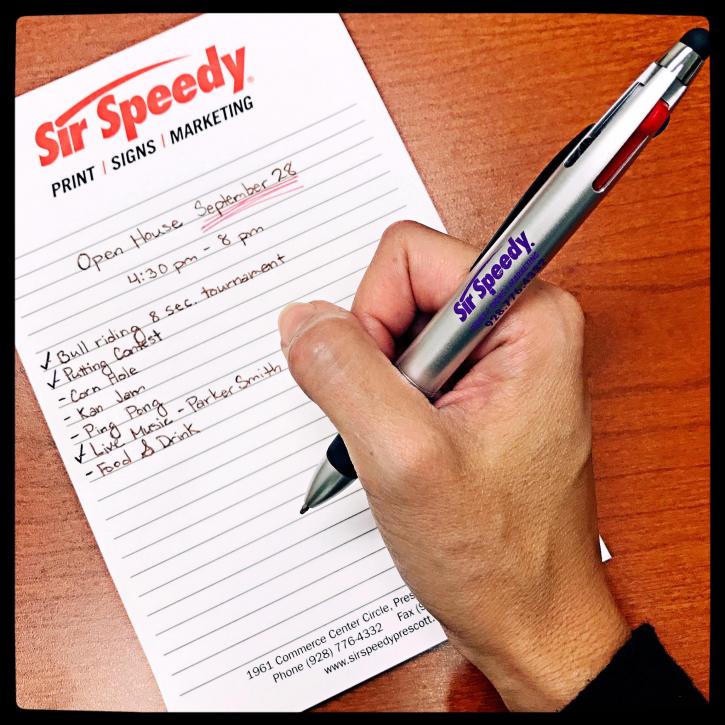 Sir Speedy®
PRINT | SIGNS | MARKETING
Open House September 28
4:30 pm - 8 pm
✓ Bull riding 8 sec. tournament
✓ Putting Contest
- Corn Hole
- Kan Jam
- Ping Pong
✓ Live Music - Parker Smith
- Food & Drink
1961 Commerce Center Circle, Pres
Phone (928) 776-4332 Fax (9
www.sirspeedyprescott.
Sir Speedy.